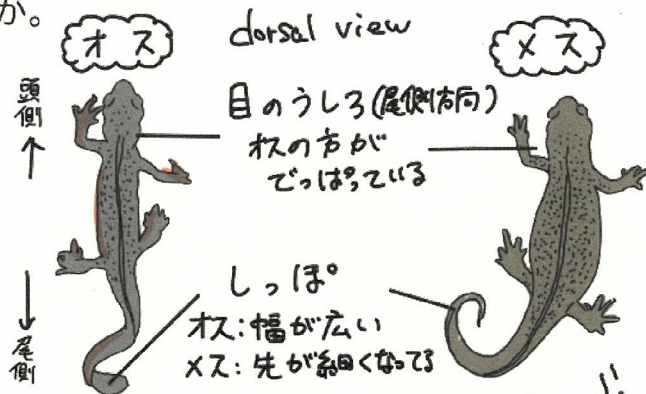 か。
オス
dorsal view
メス
頭側
目のうしろ(尾側方向)
オスの方が
でっぱっている
しっぽ
オス:幅が広い
メス:先が細くなってる
尾側